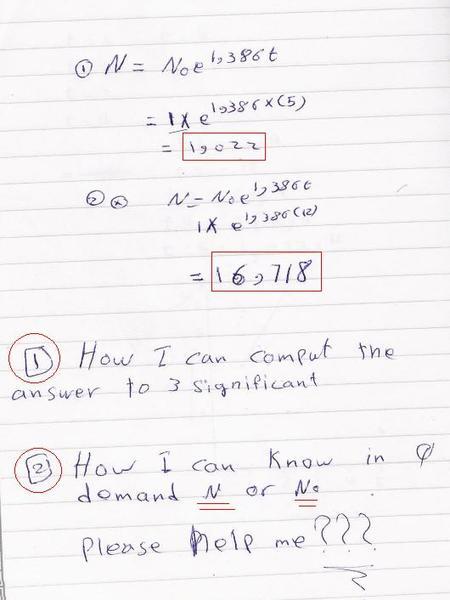 ① N = N₀e^1,386t
= 1x e^1,386x(5)
= 1,022
② ⓧ N = N₀e^1,386t
1x e^1,386(12)
= 16,718
1 How I can comput the
answer to 3 significant
2 How I can know in φ
demand N or N₀
please help me ???